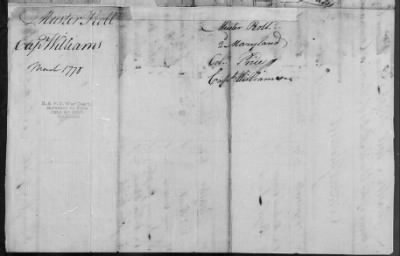 Muster Roll
Capt Williams
March 1778
Muster Roll
2 Maryland
Col. Price
Capt Williams